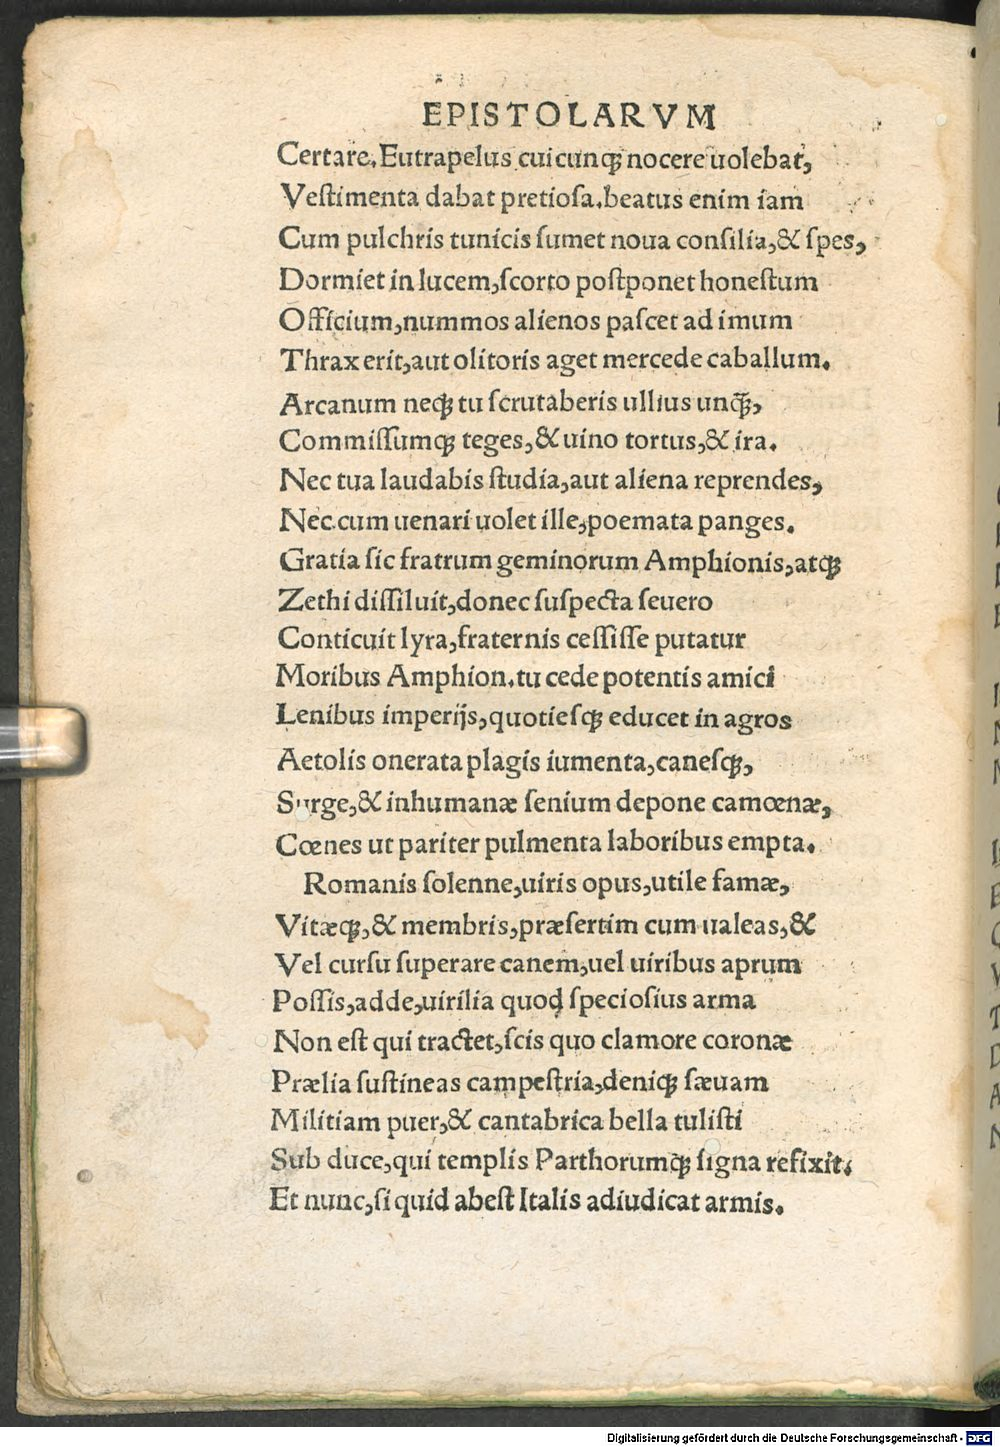 EPISTOLARVM
Certare. Eutrapelus cuicunqꝫ nocere uolebat,
Veſtimenta dabat pretioſa. beatus enim iam
Cum pulchris tunicis ſumet noua conſilia, & ſpes,
Dormiet in lucem, ſcorto poſtponet honeſtum
Officium, nummos alienos paſcet ad imum
Thrax erit, aut olitoris aget mercede caballum.
Arcanum neqꝫ tu ſcrutaberis ullius unq̃,
Commiſſumqꝫ teges, & uino tortus, & ira.
Nec tua laudabis ſtudia, aut aliena reprendes,
Nec cum uenari uolet ille, poemata panges.
Gratia ſic fratrum geminorum Amphionis, atqꝫ
Zethi diſſiluit, donec ſuſpecta ſeuero
Conticuit lyra, fraternis ceſſiſſe putatur
Moribus Amphion. tu cede potentis amici
Lenibus imperijs, quotieſqꝫ educet in agros
Aetolis onerata plagis iumenta, caneſqꝫ,
Surge, & inhumanæ ſenium depone camœnæ,
Cœnes ut pariter pulmenta laboribus empta.
Romanis ſolenne, uiris opus, utile famæ,
Vitæqꝫ, & membris, præſertim cum ualeas, &
Vel curſu ſuperare canem, uel uiribus aprum
Poſſis, adde, uirilia quod ſpecioſius arma
Non eſt qui tractet, ſcis quo clamore coronæ
Prælia ſuſtineas campeſtria, deniqꝫ ſæuam
Militiam puer, & cantabrica bella tuliſti
Sub duce, qui templis Parthorumqꝫ ſigna refixit.
Et nunc, ſi quid abeſt Italis adiudicat armis.
Digitalisierung gefördert durch die Deutsche Forschungsgemeinschaft - DFG